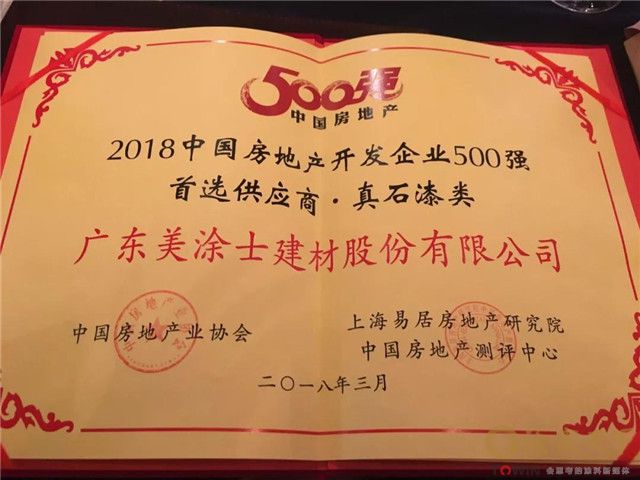 500强
中国房地产
2018中国房地产开发企业500强
首选供应商·真石漆类
广东美涂士建材股份有限公司
中国房地产业协会
上海易居房地产研究院
中国房地产测评中心
二〇一八年三月
会思考的涂料新媒体